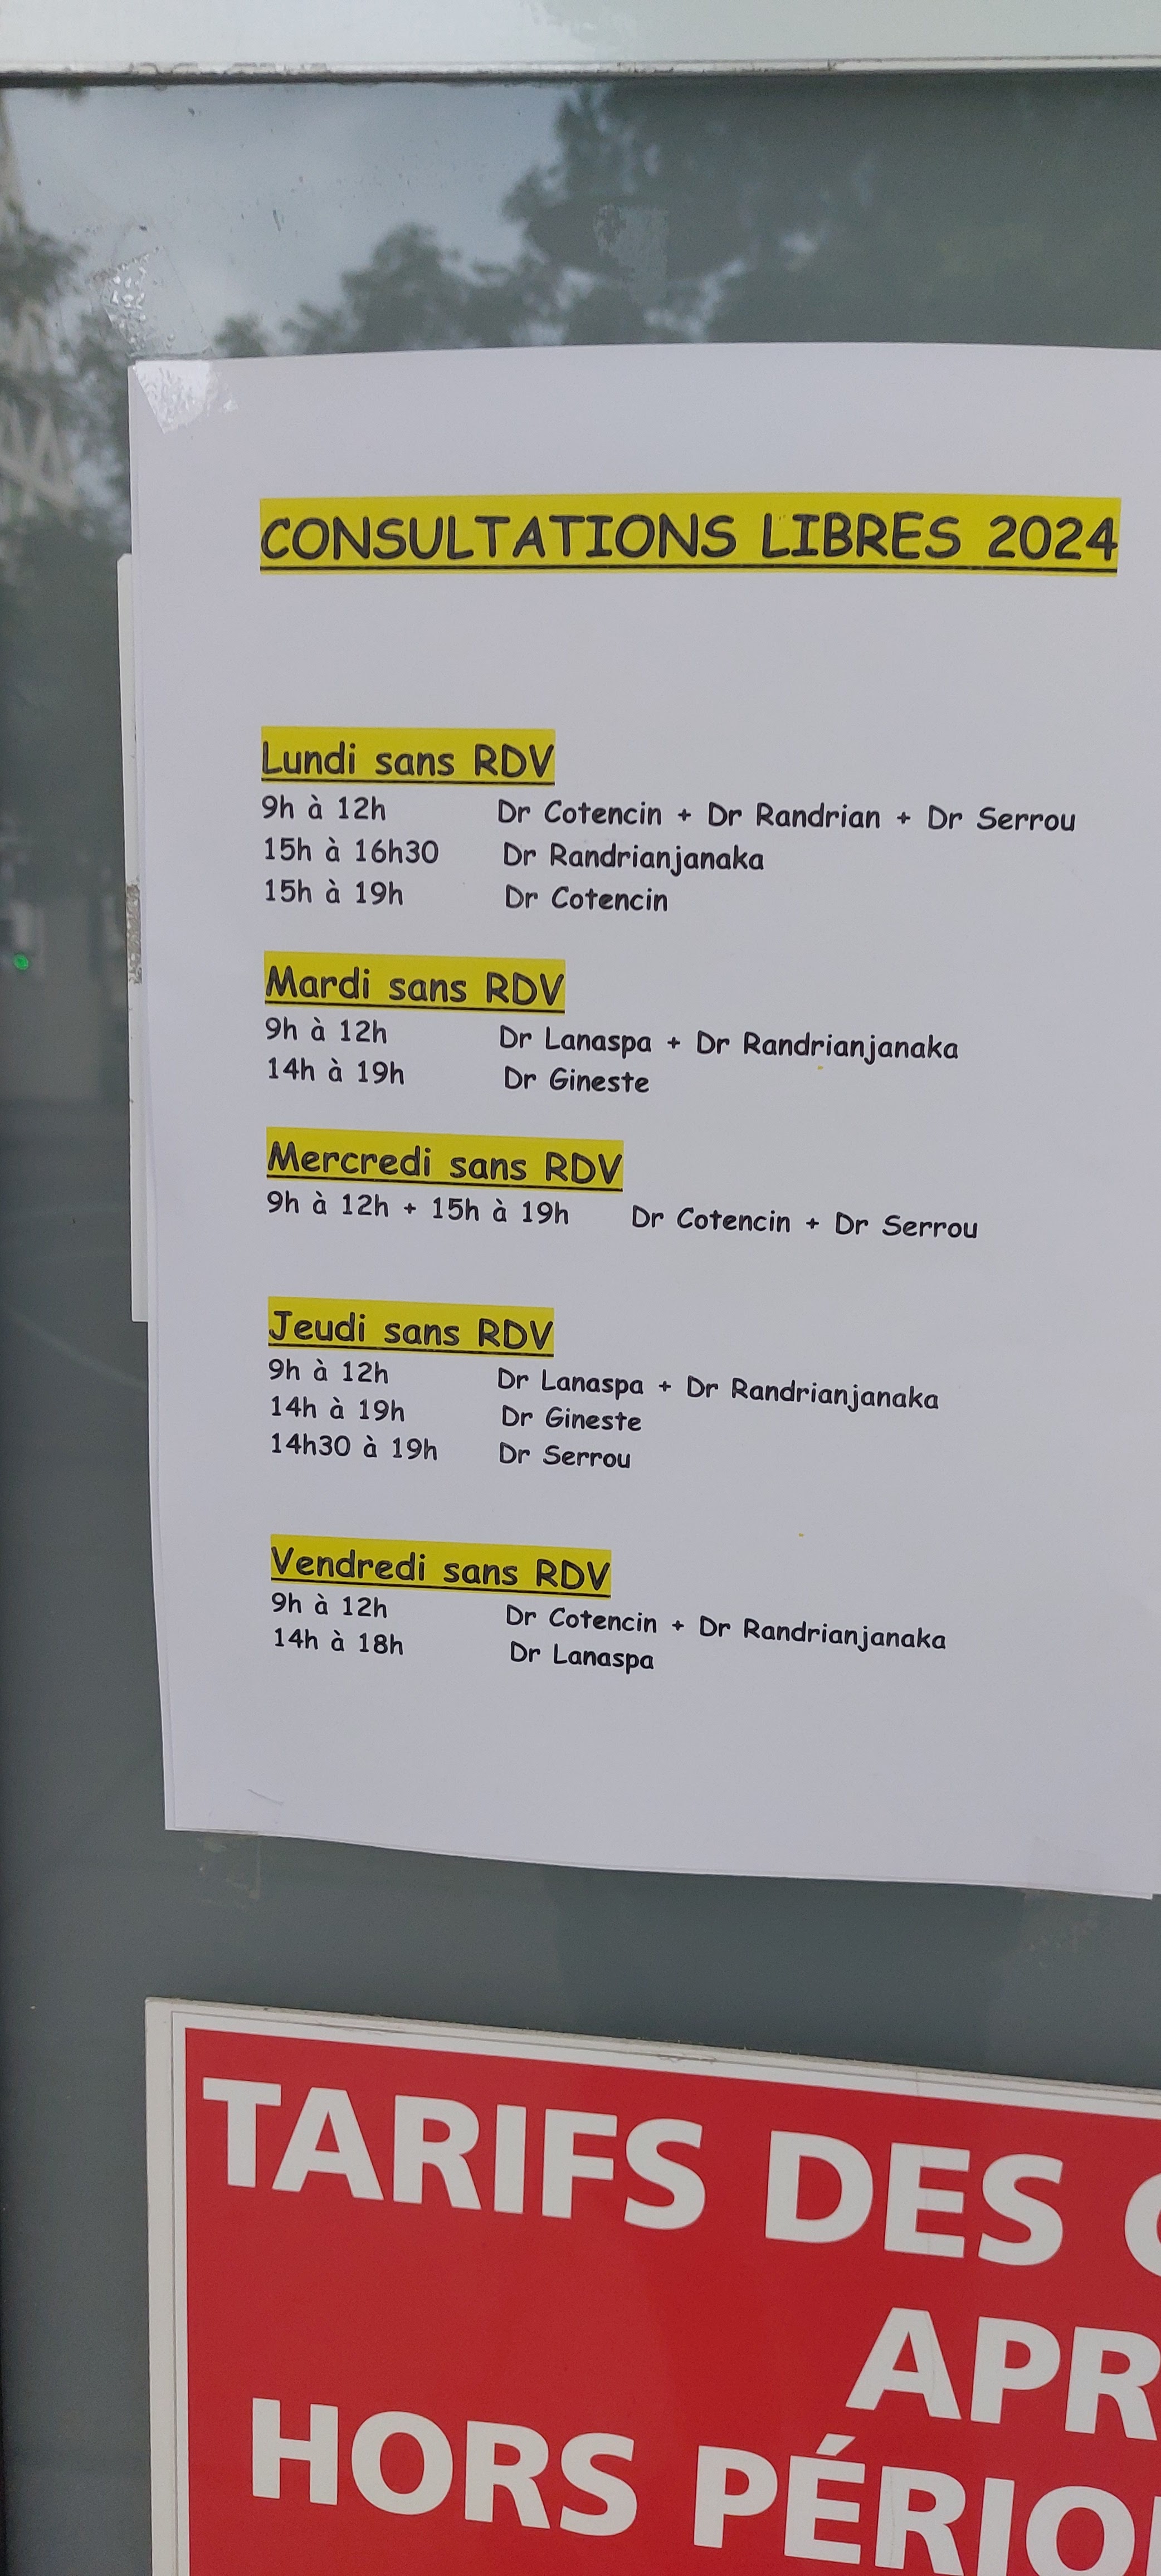 CONSULTATIONS LIBRES 2024
Lundi sans RDV
9h à 12h Dr Cotencin + Dr Randrian + Dr Serrou
15h à 16h30 Dr Randrianjanaka
15h à 19h Dr Cotencin
Mardi sans RDV
9h à 12h Dr Lanaspa + Dr Randrianjanaka
14h à 19h Dr Gineste
Mercredi sans RDV
9h à 12h + 15h à 19h Dr Cotencin + Dr Serrou
Jeudi sans RDV
9h à 12h Dr Lanaspa + Dr Randrianjanaka
14h à 19h Dr Gineste
14h30 à 19h Dr Serrou
Vendredi sans RDV
9h à 12h Dr Cotencin + Dr Randrianjanaka
14h à 18h Dr Lanaspa
TARIFS DES
APR
HORS PÉRIO